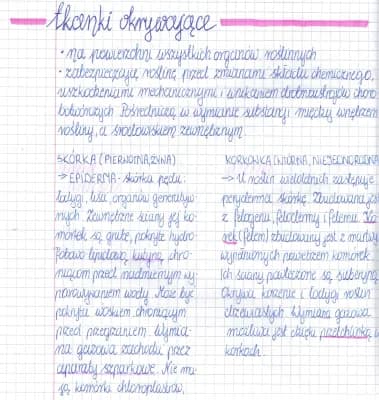 tkanki okrywające
· na powierzchni wszystkich organów roślinnych
· zabezpieczają roślinę przed zmianami składu chemicznego,
uszkodzeniami mechanicznymi i wnikaniem drobnoustrojów choro
botwórczych. Pośredniczą w wymianie substancji między wnętrzem
rośliny, a środowiskiem zewnętrznym.
SKÓRKA (PIERWOTNA, ŻYWA)
→ EPIDERMA - skórka pędu:
łodygi, liści, organów generatyw
nych. Zewnętrzne ściany jej ko-
mórek są grube, pokryte hydro
fobową lipidową kutyną, chro-
niącą przed nadmiernym wy-
parowywaniem wody. Może być
pokryta woskiem chroniącym
przed przegrzaniem. Wymia-
na gazowa zachodzi przez
aparaty szparkowe. Nie ma-
ją komórki chloroplastów,
KORKOWICA (WTÓRNA, NIEJEDNORODNA)
→ U roślin wieloletnich zastępuje
perydermę skórkę. Zbudowana jest
z felogenu, felodermy i felemu. Ko
rek (felem) zbudowany jest z martwych
wypełnionych powietrzem komórek.
Ich ściany powleczone są suberyną.
Okrywa korzenie i łodygi roślin
drzewiastych. Wymiana gazowa
możliwa jest dzięki przetchlinką w
korkach.